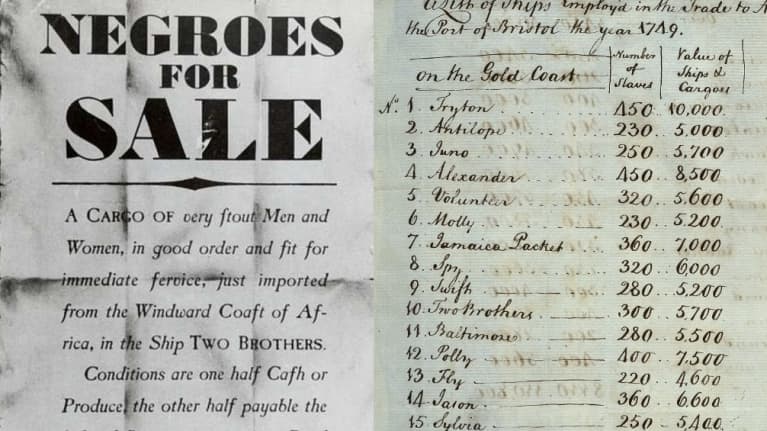 NEGROES
FOR
SALE
A CARGO OF very ſtout Men and
Women, in good order and fit for
immediate ſervice, just imported
from the Windward Coaſt of Af-
rica, in the Ship TWO BROTHERS.
Conditions are one half Caſh or
Produce, the other half payable the
A List of Ships Employ'd in the Trade to
the Port of Bristol the year 1749.
on the Gold Coast Number of Slaves Value of Ships & Cargoes
No. 1. Tryton 450 10,000
2. Antilope 230 5,000
3. Juno 250 5,700
4. Alexander 450 8,500
5. Volunteer 320 5,600
6. Molly 230 5,200
7. Jamaica Packet 360 7,000
8. Spy 320 6,000
9. Swift 280 5,200
10. Two Brothers 300 5,700
11. Baltimore 280 5,500
12. Polly 400 7,500
13. Fly 220 4,600
14. Jason 360 6,600
15. Sylvia 250 5,400